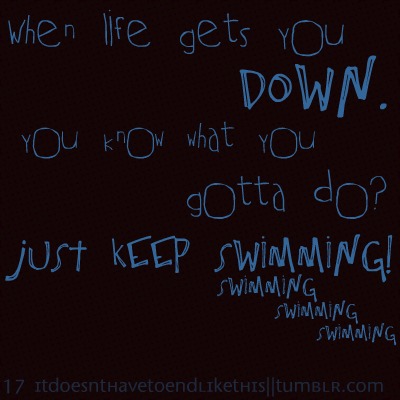 when life gets you
DOWN.
you know what you
gotta do?
just KEEP SWiMMiNG!
SWiMMiNG
SWiMMiNG
SWiMMiNG
17 itdoesnthavetoendlikethis||tumblr.com